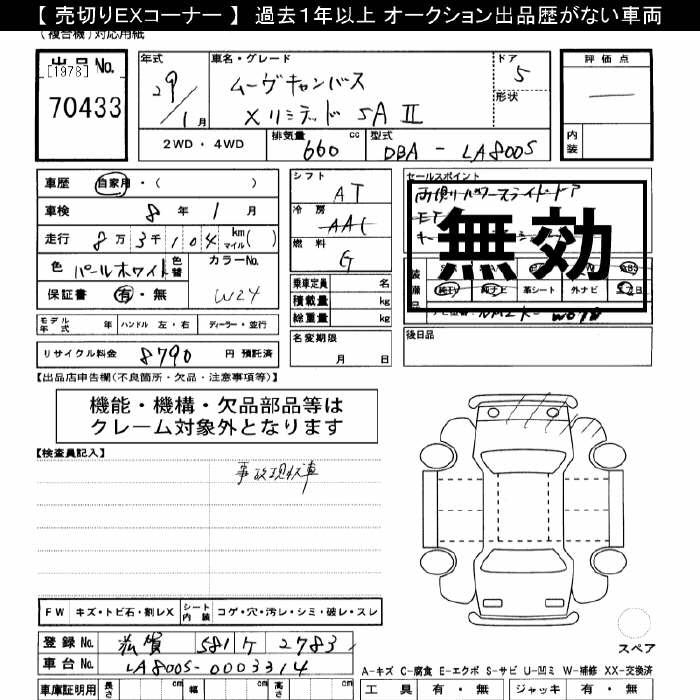 【 売切りEXコーナー 】 過去１年以上 オークション出品歴がない車両
(複合機)対応用紙
出品No. [1978] 70433
年式 29/1月
車名・グレード ムーヴキャンバス
Xリミテッド SAⅡ
ドア 5
形状
評価点 —
内装
2WD ・ 4WD 排気量 660 cc 型式 DBA - LA800S
車歴 自家用・( )
車検 8年 1月
走行 8万3千104 km マイル( )
色 パールホワイト 色替 カラーNo. W24
保証書 有・無
モデル年式 年 ハンドル 左・右 ディーラー・並行
リサイクル料金 8790 円 預託済
シフト AT
冷房 AAC
燃料 G
乗車定員 名
積載量 kg
総重量 kg
名変期限
月 日
セールスポイント
両側パワースライドドア
無効
純ナビ 革シート 外ナビ
後日品
【出品店申告欄(不良箇所・欠品・注意事項等)】
機能・機構・欠品部品等は
クレーム対象外となります
【検査員記入】
事故現状車
FW キズ・トビ石・割レX シート内装 コゲ・穴・汚レ・シミ・破レ・スレ
登録No. 滋賀 581 ケ 2783
車台No. LA800S-0003314
スペア
A-キズ C-腐食 E-エクボ S-サビ U-凹ミ W-補修 XX-交換済
車庫証明用 長さ cm 幅 cm 高さ cm 工具 有・無 ジャッキ 有・無